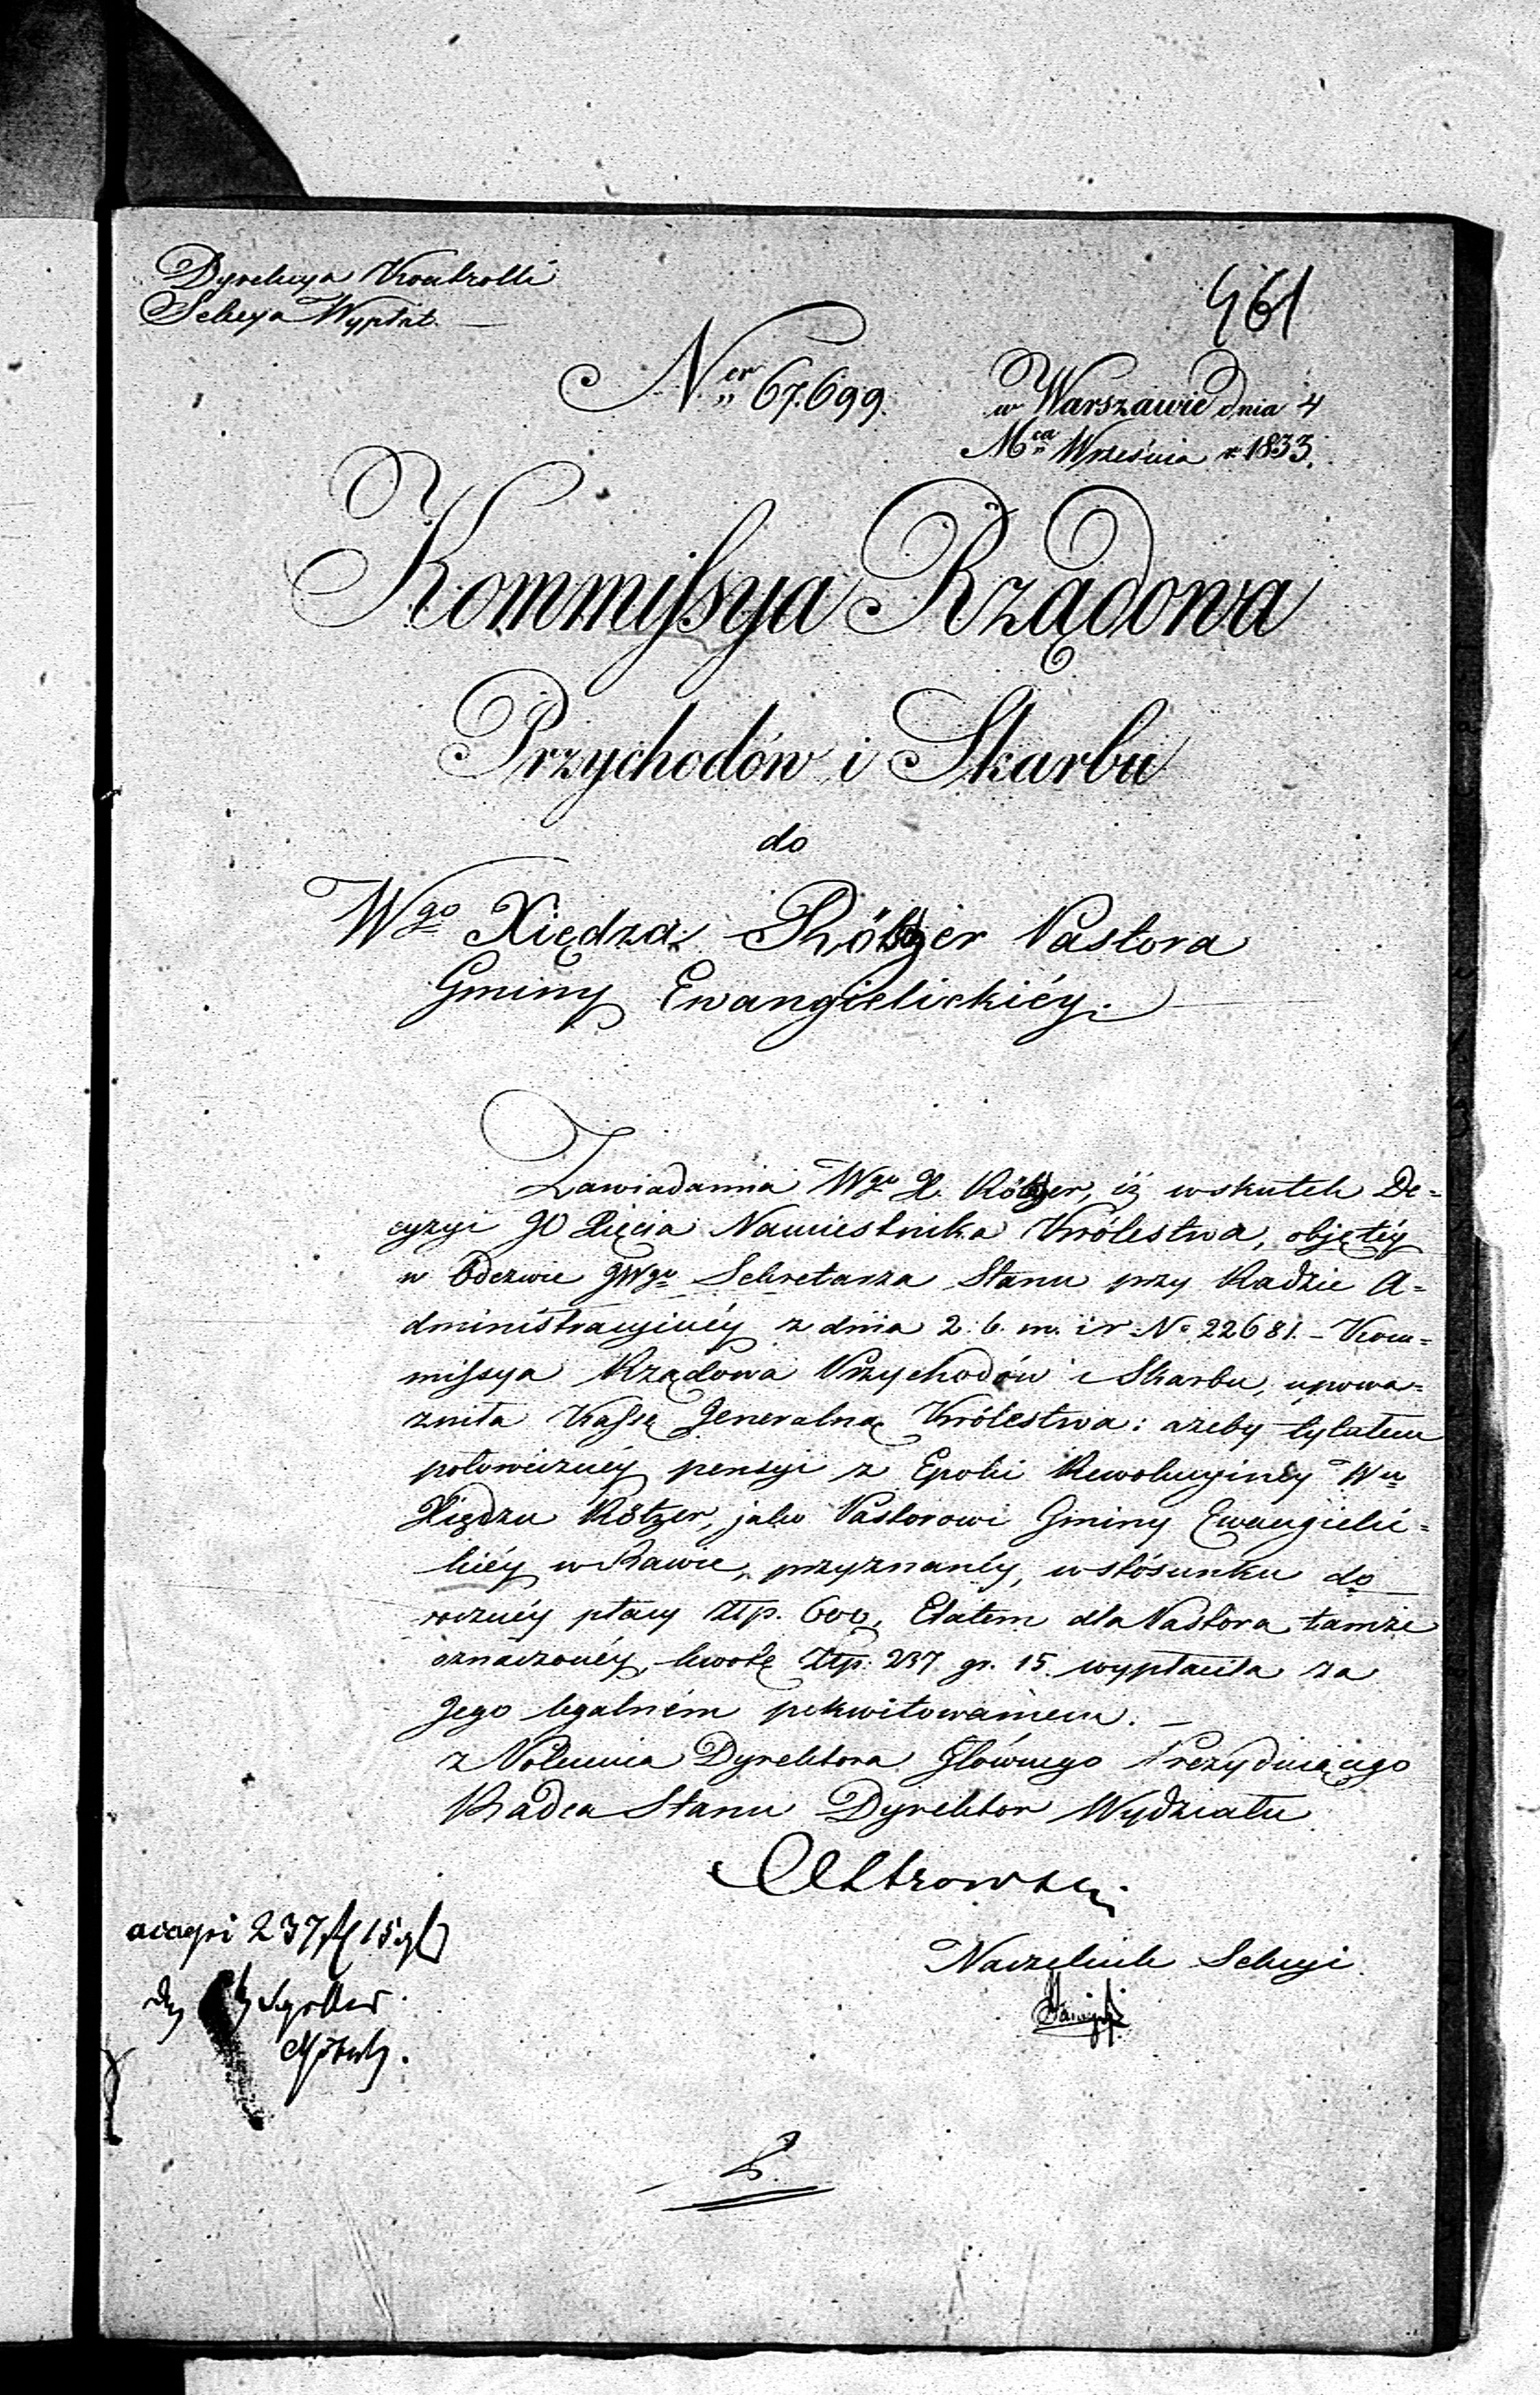 Dyrekcya Kontrolli
Sekcya Wypłat.
461
Ner 67.699.
w Warszawie dnia 4
Mca Września r 1833.
Kommissya Rządowa
Przychodów i Skarbu
do
Wgo Xiędza Rötzer Pastora
Gminy Ewangielickiéy.
Zawiadamia Wgo X. Rötzer, iż wskutek De=
cyzyi JO Xięcia Namiestnika Królestwa, objętéy
w Odezwie JWgo Sekretarza Stanu przy Radzie A=
dministracyinéy z dnia 2. b. m. i r. No 22681. – Kom=
missya Rządowa Przychodów i Skarbu, upowa=
żniła Kassę Jeneralną Królestwa: ażeby tytułem
połowicznéy pensyi z Epoki Rewolucyinéy Wu
Xiędzu Rötzer, jako Pastorowi Gminy Ewangielic=
kiéy w Rawie, przyznanéy, w stósunku do
rocznéy płacy Złp. 600, Etatem dla Pastora tamże
oznaczonéy, kwotę Złp. 237 gr. 15. wypłaciła za
Jego legalném pokwitowaniem. –
z Polecenia Dyrektora Głównego Prezyduiącego
Radca Stanu Dyrektor Wydziału
Naczelnik Sekcyi
accepi 237 fl 15 gl